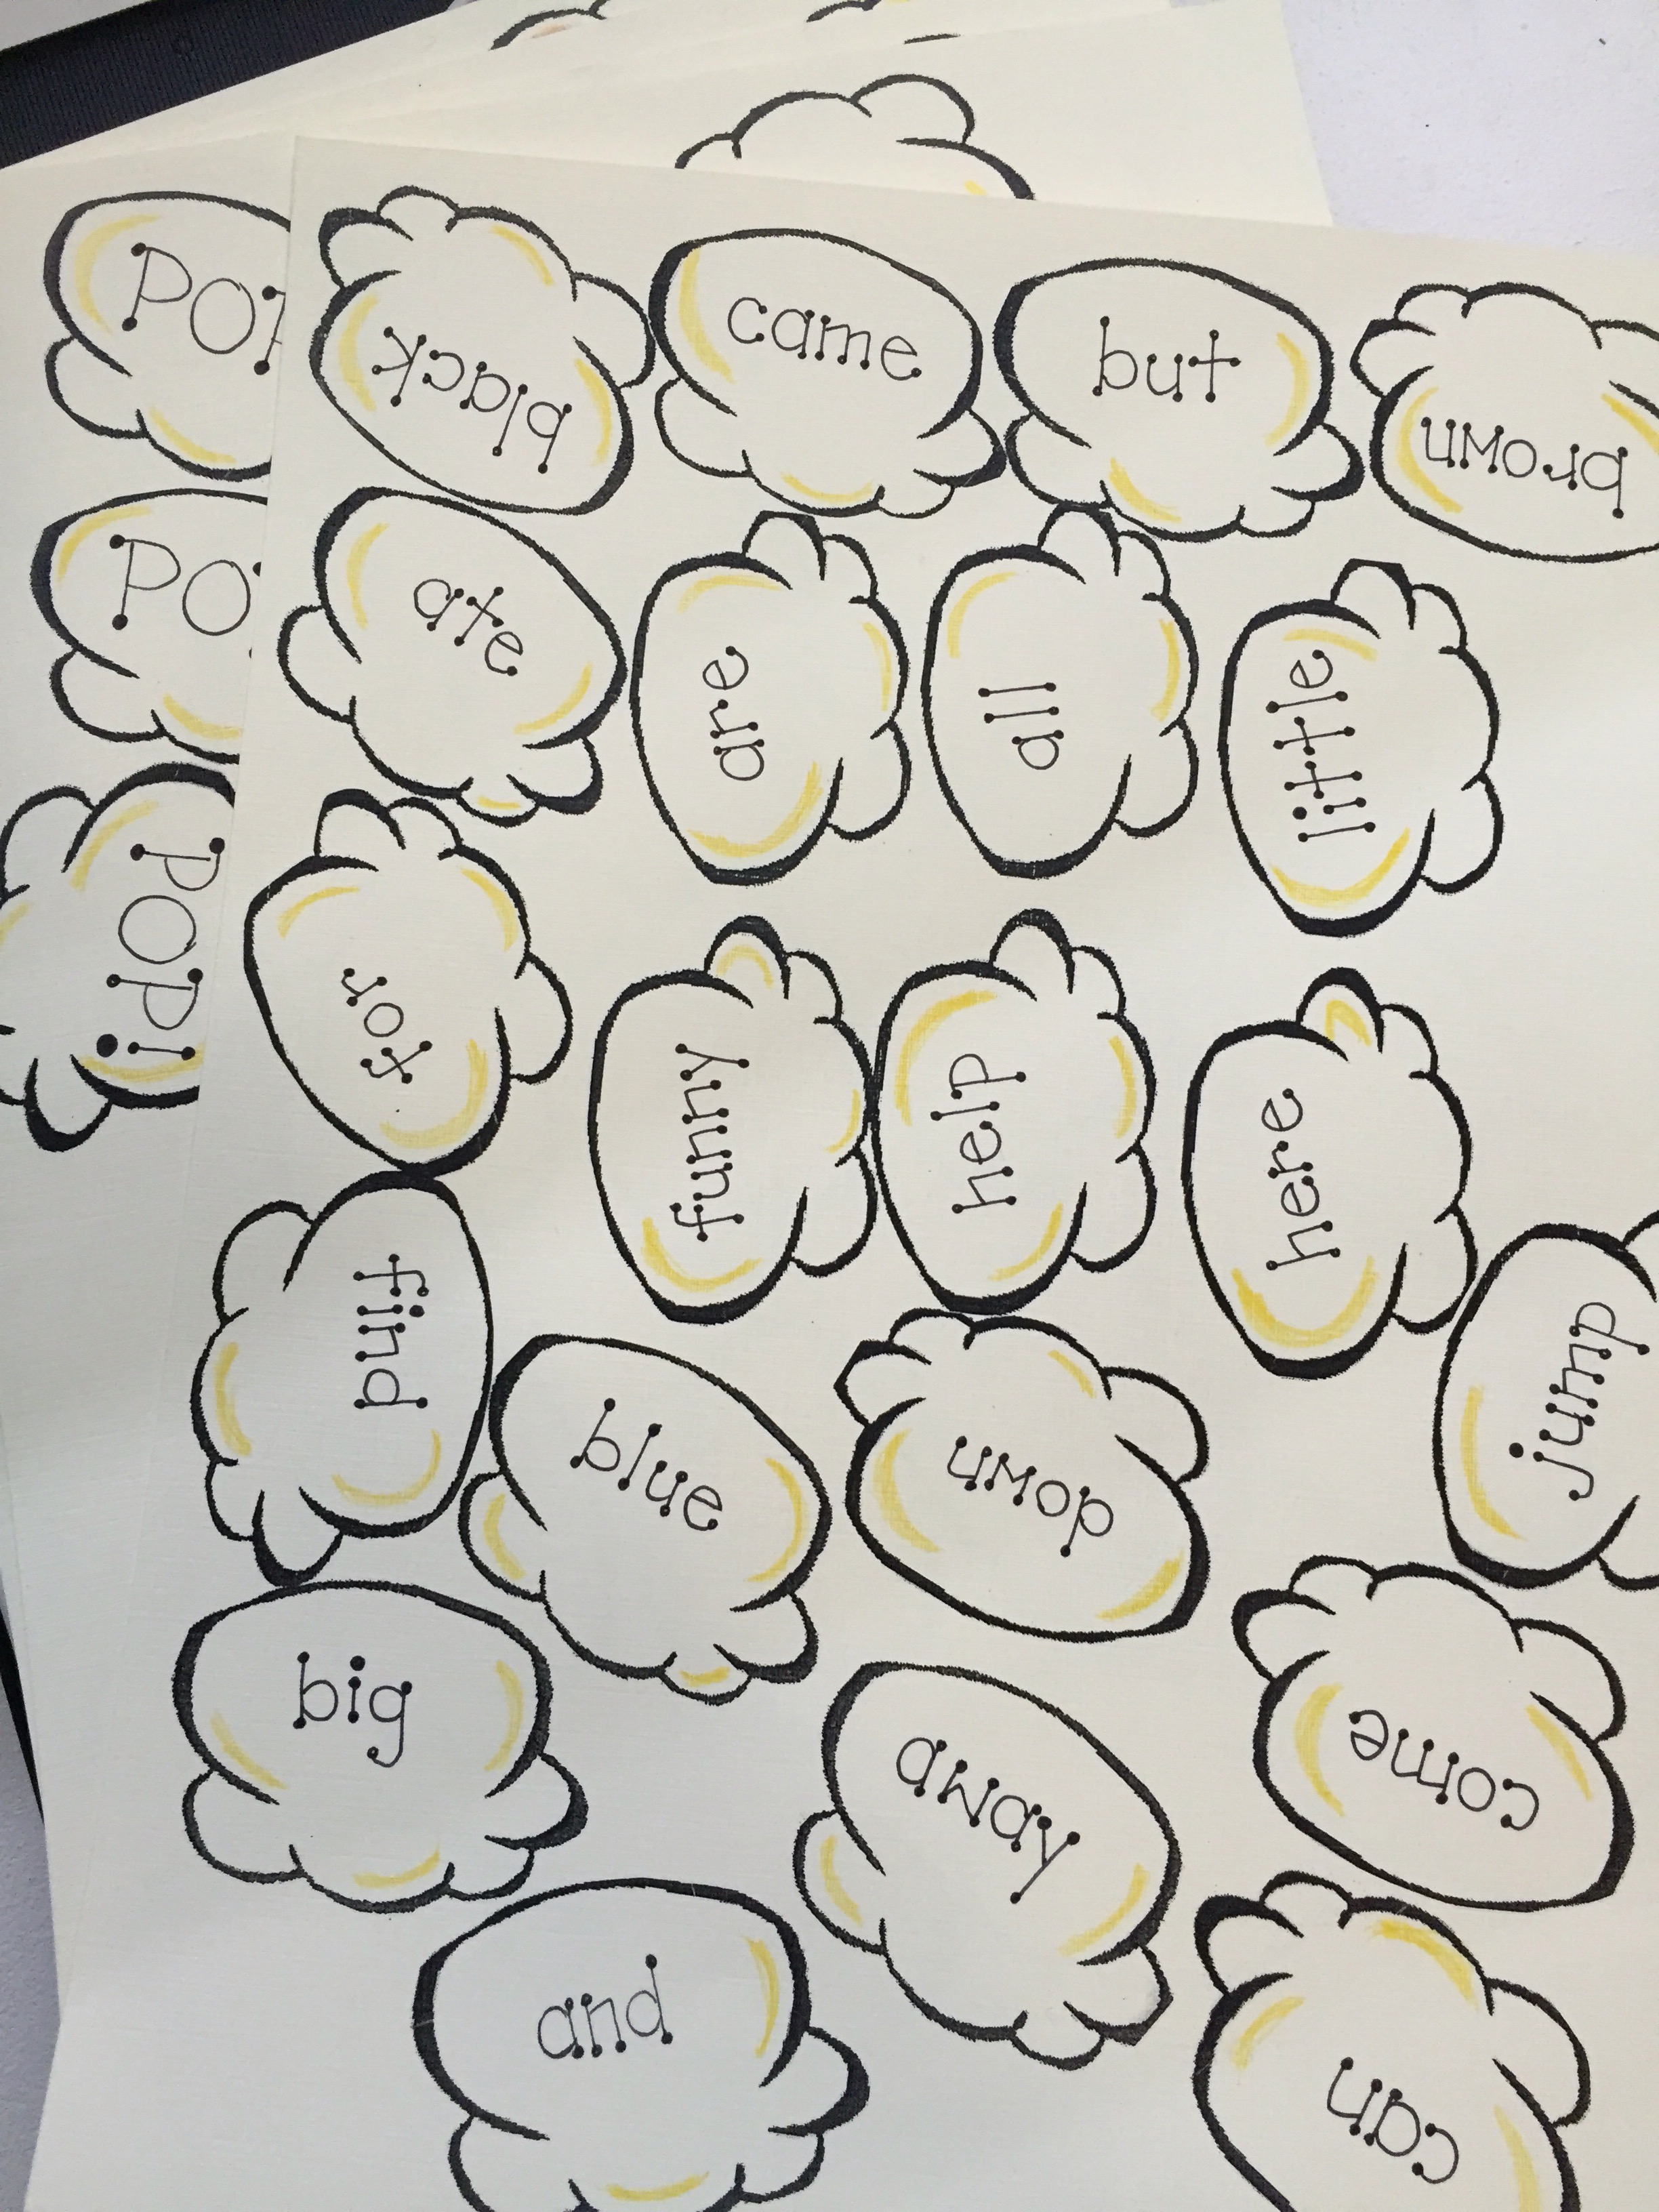 black
came
but
brown
ate
are
all
little
for
funny
help
here
find
blue
down
jump
big
away
come
and
can